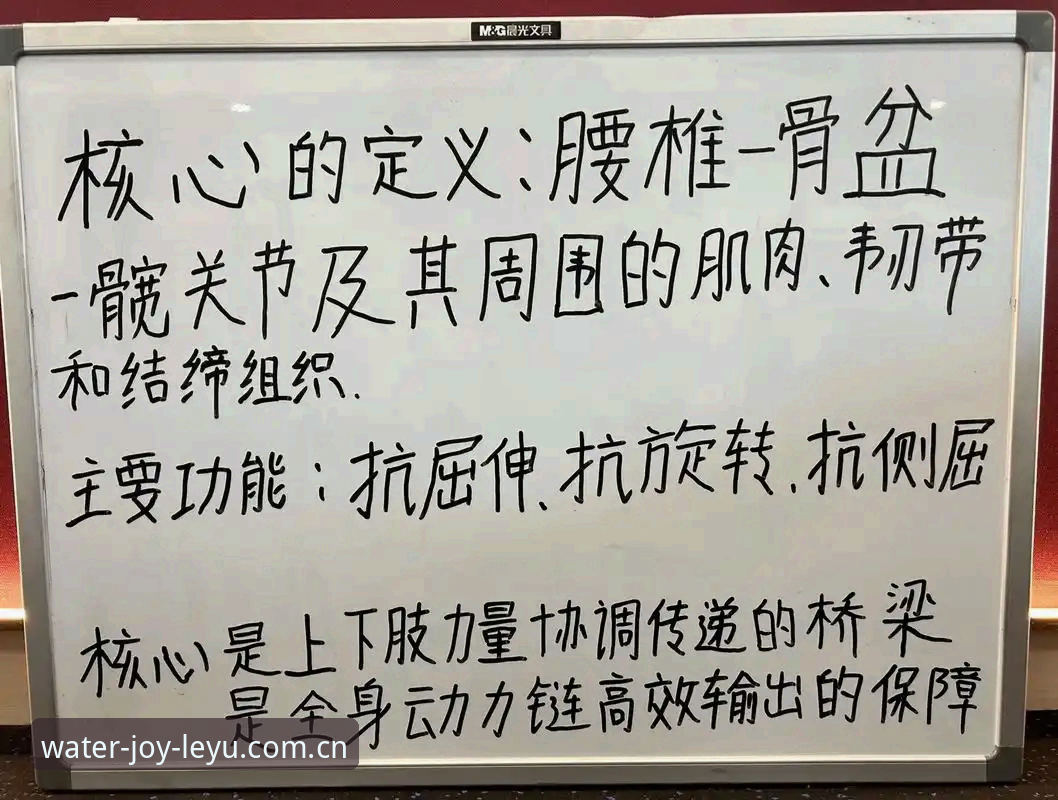 M&G晨光文具
核心的定义:腰椎-骨盆
-髋关节及其周围的肌肉、韧带
和结缔组织.
主要功能:抗屈伸、抗旋转、抗侧屈
核心是上下肢力量协调传递的桥梁
是全身动力链高效输出的保障
water-joy-leyu.com.cn